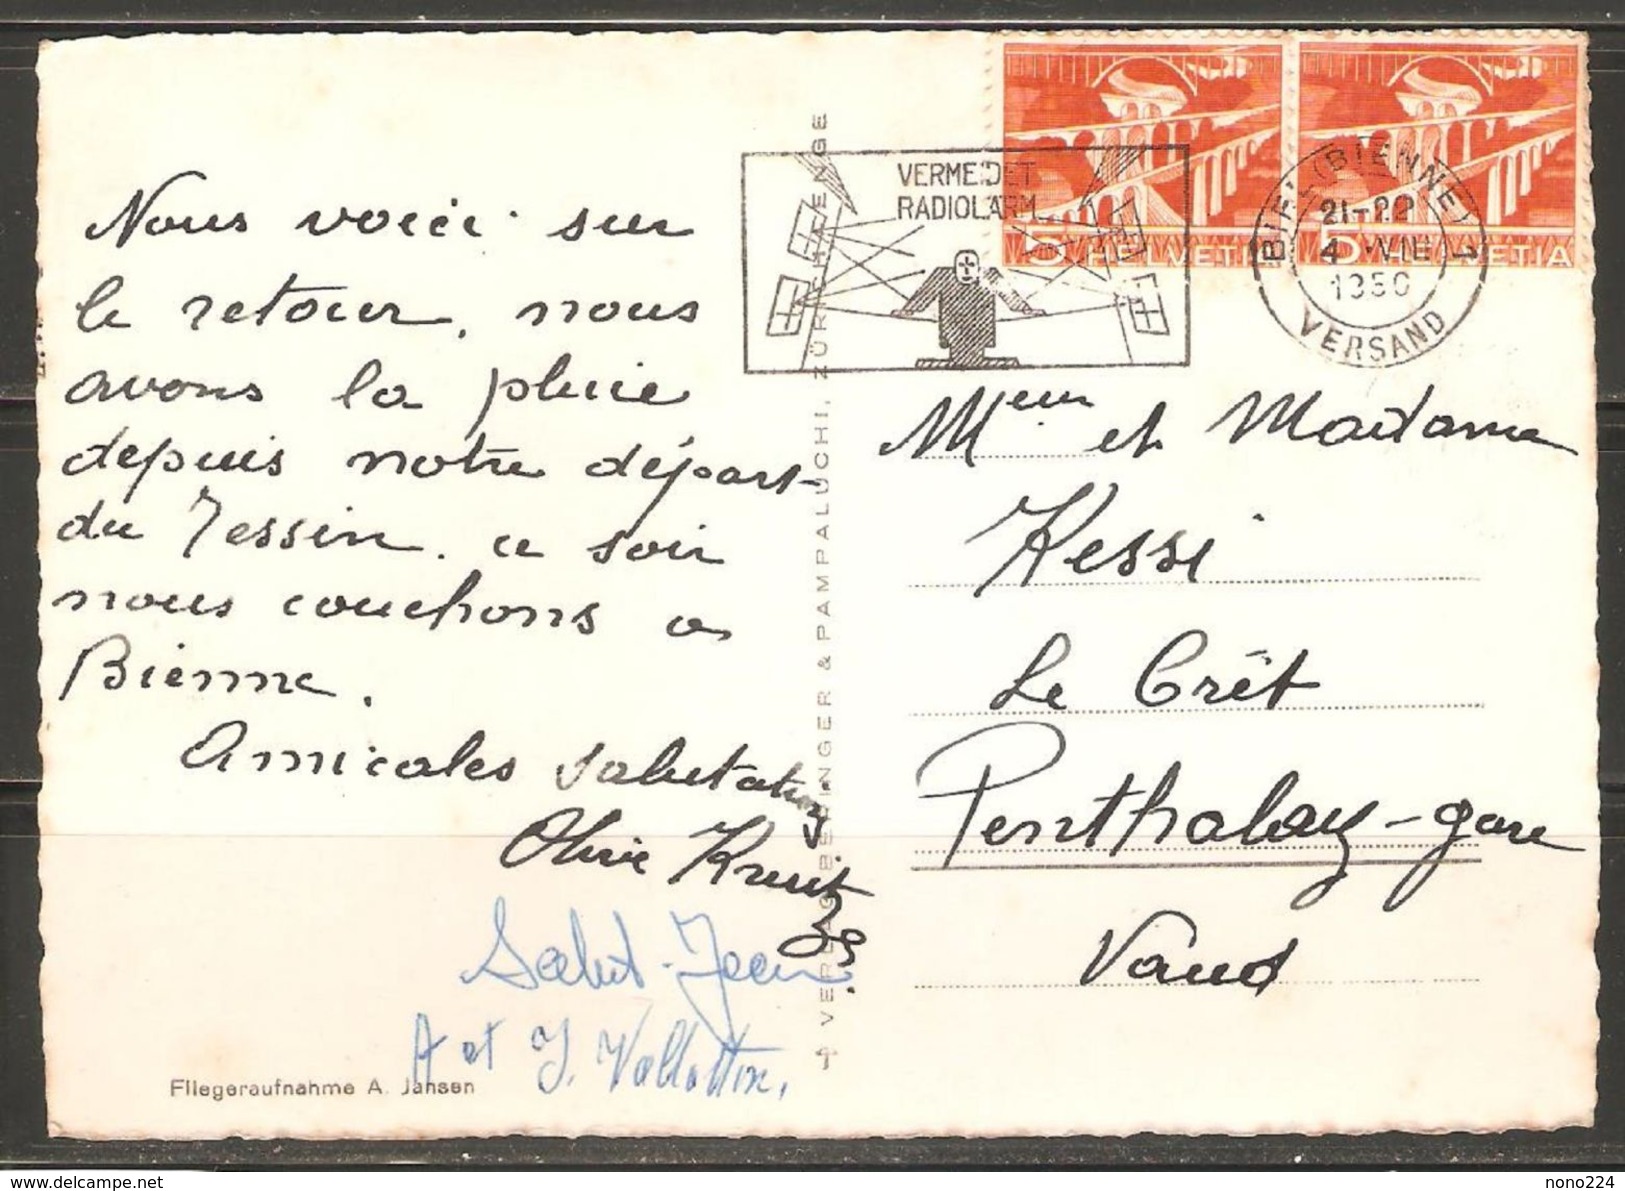 Nous voici sur
le retour, nous
avons la pluie
depuis notre départ
du Tessin. ce soir
nous couchons à
Bienne.
Amicales salutations
Salut. Jean
A et J. Vallotton.
Fliegeraufnahme A. Jansen
VERLAG BERINGER & PAMPALUCHI, ZÜRICH-ENGE
VERMEIDET
RADIOLÄRM
5 HELVETIA
5 HELVETIA
BIEL (BIENNE) 1
21-22
4 VII
1950
VERSAND
Mieur et Madame
Kessi
Le Crêt
Penthalaz-gare
Vaud
nono224